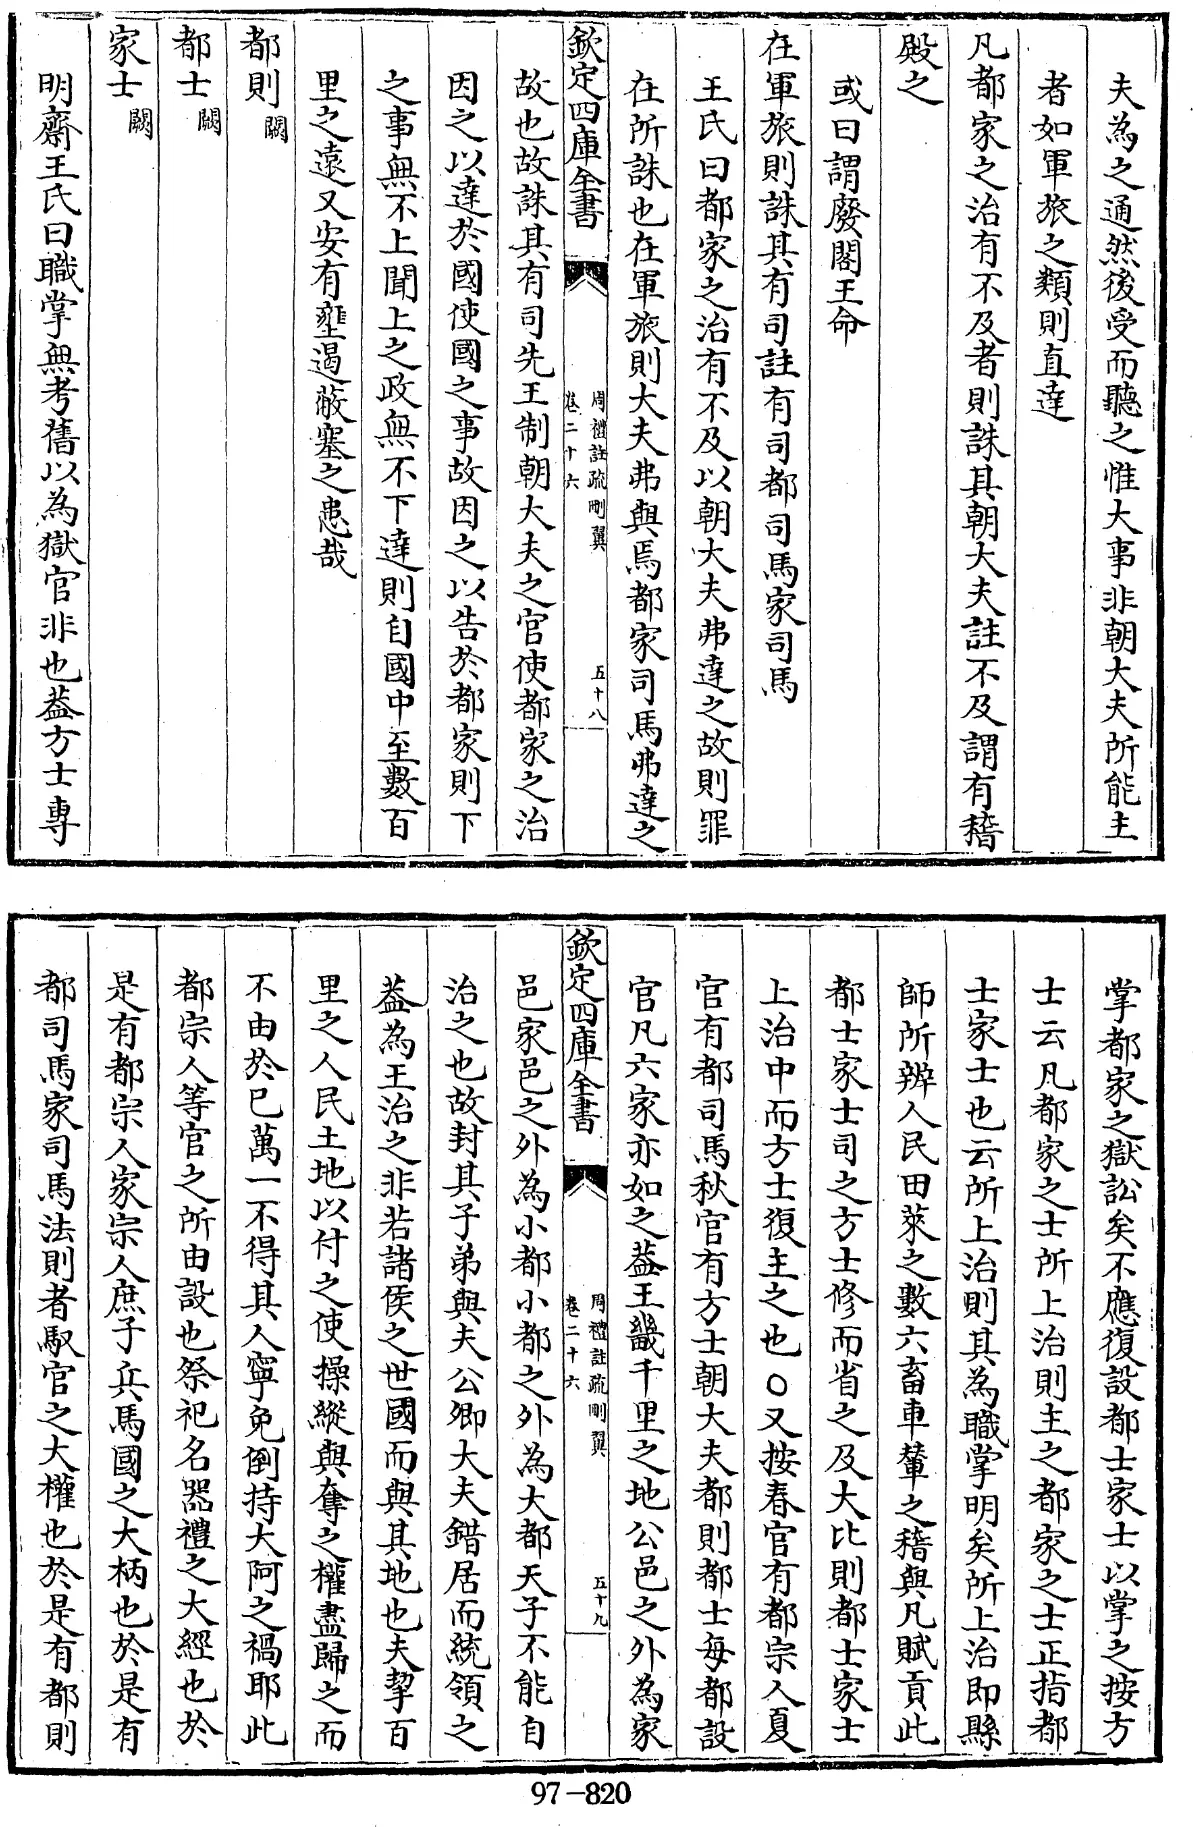 夫為之通然後受而聽之惟大事非朝大夫所能主
者如軍旅之類則直達
凡都家之治有不及者則誅其朝大夫註不及謂有稽
殿之
或曰謂廢閣王命
在軍旅則誅其有司註有司都司馬家司馬
王氏曰都家之治有不及以朝大夫弗達之故則罪
在所誅也在軍旅則大夫弗與焉都家司馬弗達之
欽定四庫全書
周禮註疏刪翼
卷二十六
五十八
故也故誅其有司先王制朝大夫之官使都家之治
因之以達於國使國之事故因之以告於都家則下
之事無不上聞上之政無不下達則自國中至數百
里之遠又安有壅遏蔽塞之患哉
都則闕
都士闕
家士闕
明齋王氏曰職掌無考舊以為獄官非也葢方士專
掌都家之獄訟矣不應復設都士家士以掌之按方
士云凡都家之士所上治則主之都家之士正指都
士家士也云所上治則其為職掌明矣所上治即縣
師所辨人民田萊之數六畜車輦之稽與凡賦貢此
都士家士司之方士修而省之及大比則都士家士
上治中而方士復主之也○又按春官有都宗人夏
官有都司馬秋官有方士朝大夫都則都士每都設
官凡六家亦如之葢王畿千里之地公邑之外為家
欽定四庫全書
周禮註疏刪翼
卷二十六
五十九
邑家邑之外為小都小都之外為大都天子不能自
治之也故封其子弟與夫公卿大夫錯居而統領之
葢為王治之非若諸侯之世國而與其地也夫挈百
里之人民土地以付之使操縱與奪之權盡歸之而
不由於已萬一不得其人寧免倒持大阿之禍耶此
都宗人等官之所由設也祭祀名器禮之大經也於
是有都宗人家宗人庶子兵馬國之大柄也於是有
都司馬家司馬法則者馭官之大權也於是有都則
97-820